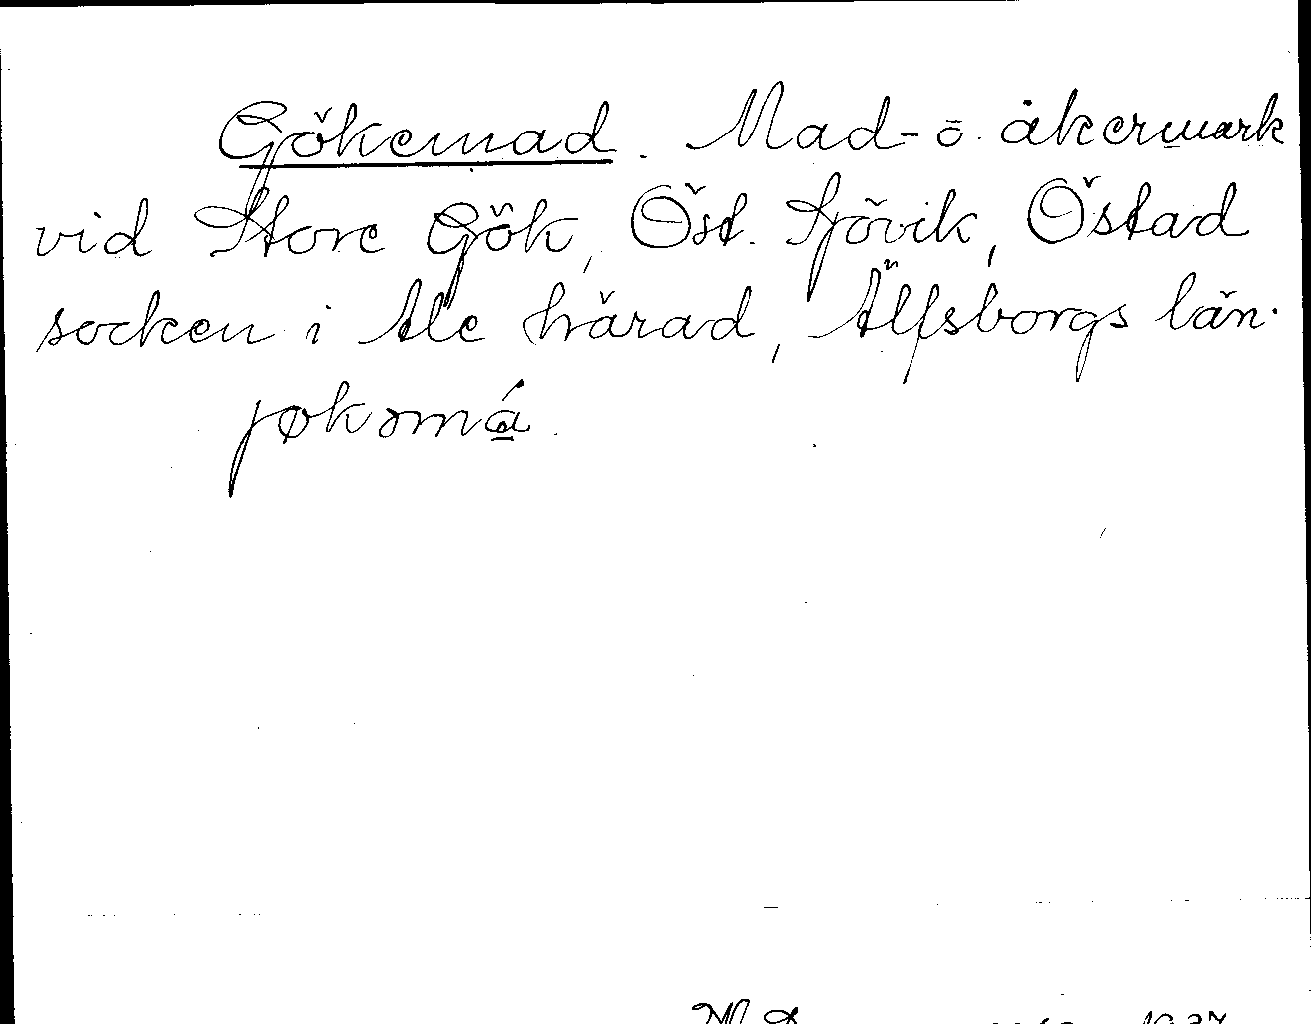 Gökemad. Mad- o. åkermark
vid Store Gök, Öst. Sjövik, Östad
socken i Ale härad, Älfsborgs län.
jøkəmá
1937